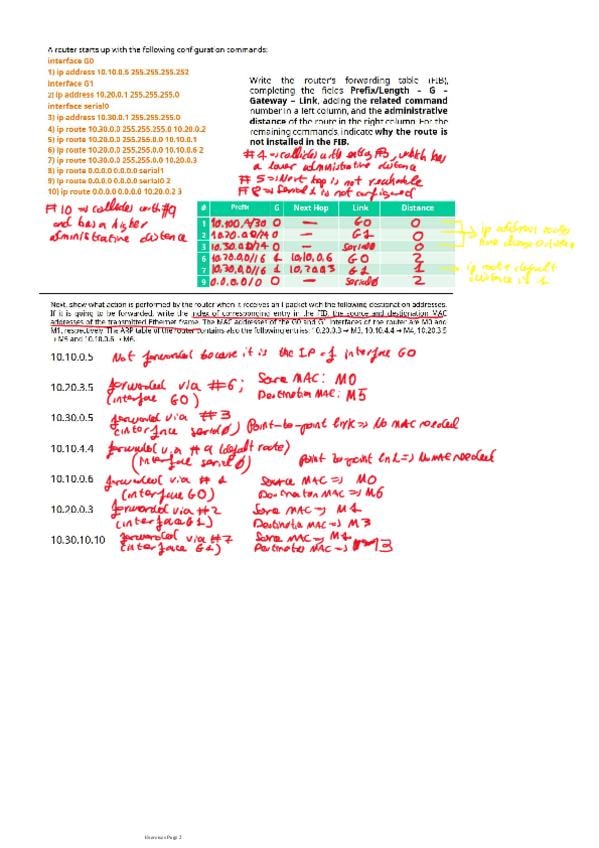 A router starts up with the following configuration commands:
interface G0
1) ip address 10.10.0.5 255.255.255.252
interface G1
2) ip address 10.20.0.1 255.255.255.0
interface serial0
3) ip address 10.30.0.1 255.255.255.0
4) ip route 10.30.0.0 255.255.255.0 10.20.0.2
5) ip route 10.20.0.0 255.255.0.0 10.10.8.1
6) ip route 10.20.0.0 255.255.0.0 10.10.0.6 2
7) ip route 10.30.0.0 255.255.0.0 10.20.0.3
8) ip route 0.0.0.0 0.0.0.0 serial1
9) ip route 0.0.0.0 0.0.0.0 serial0 2
10) ip route 0.0.0.0 0.0.0.0 10.20.0.2 3
Write the router's forwarding table (FIB),
completing the fields Prefix/Length – G –
Gateway – Link, adding the related command
number in a left column, and the administrative
distance of the route in the right column. For the
remaining commands, indicate why the route is
not installed in the FIB.
#4 => collides with entry #3, which has
a lower administrative distance
#5 => Next hop is not reachable
#8 => Serial 1 is not configured
#10 => collides with #9
and has a higher
administrative distance
# Prefix G Next Hop Link Distance
1 10.10.0.4/30 0 — G0 0
2 10.20.0.0/24 0 — G1 0
3 10.30.0.0/24 0 — serial0 0
6 10.20.0.0/16 1 10.10.0.6 G0 2
7 10.30.0.0/16 1 10.20.0.3 G1 1
9 0.0.0.0/0 0 — serial0 2
ip address routes
have always 0 distance
ip route default
distance is 1
Next, show what action is performed by the router when it receives an IP packet with the following destination addresses.
If it is going to be forwarded, write the index of corresponding entry in the FIB, the source and destination MAC
addresses of the transmitted Ethernet frame. The MAC addresses of the G0 and G1 interfaces of the router are M0 and
M1, respectively. The ARP table of the router contains also the following entries: 10.20.0.3 → M3, 10.10.4.4 → M4, 10.20.3.5
→ M5 and 10.10.0.6 → M6.
10.10.0.5 Not forwarded because it is the IP of interface G0
10.20.3.5 forwarded via #6; Source MAC: M0
(interface G0) Destination MAC: M5
10.30.0.5 forwarded via #3
(interface serial0) Point-to-point link => No MAC needed
10.10.4.4 forwarded via #9 (default route)
(interface serial0) Point to point link => No MAC needed
10.10.0.6 forwarded via #1 Source MAC => M0
(interface G0) Destination MAC => M6
10.20.0.3 forwarded via #2 Source MAC => M1
(interface G1) Destination MAC => M3
10.30.10.10 forwarded via #7 Source MAC => M1
(interface G1) Destination MAC => M3
Exercises Page 2